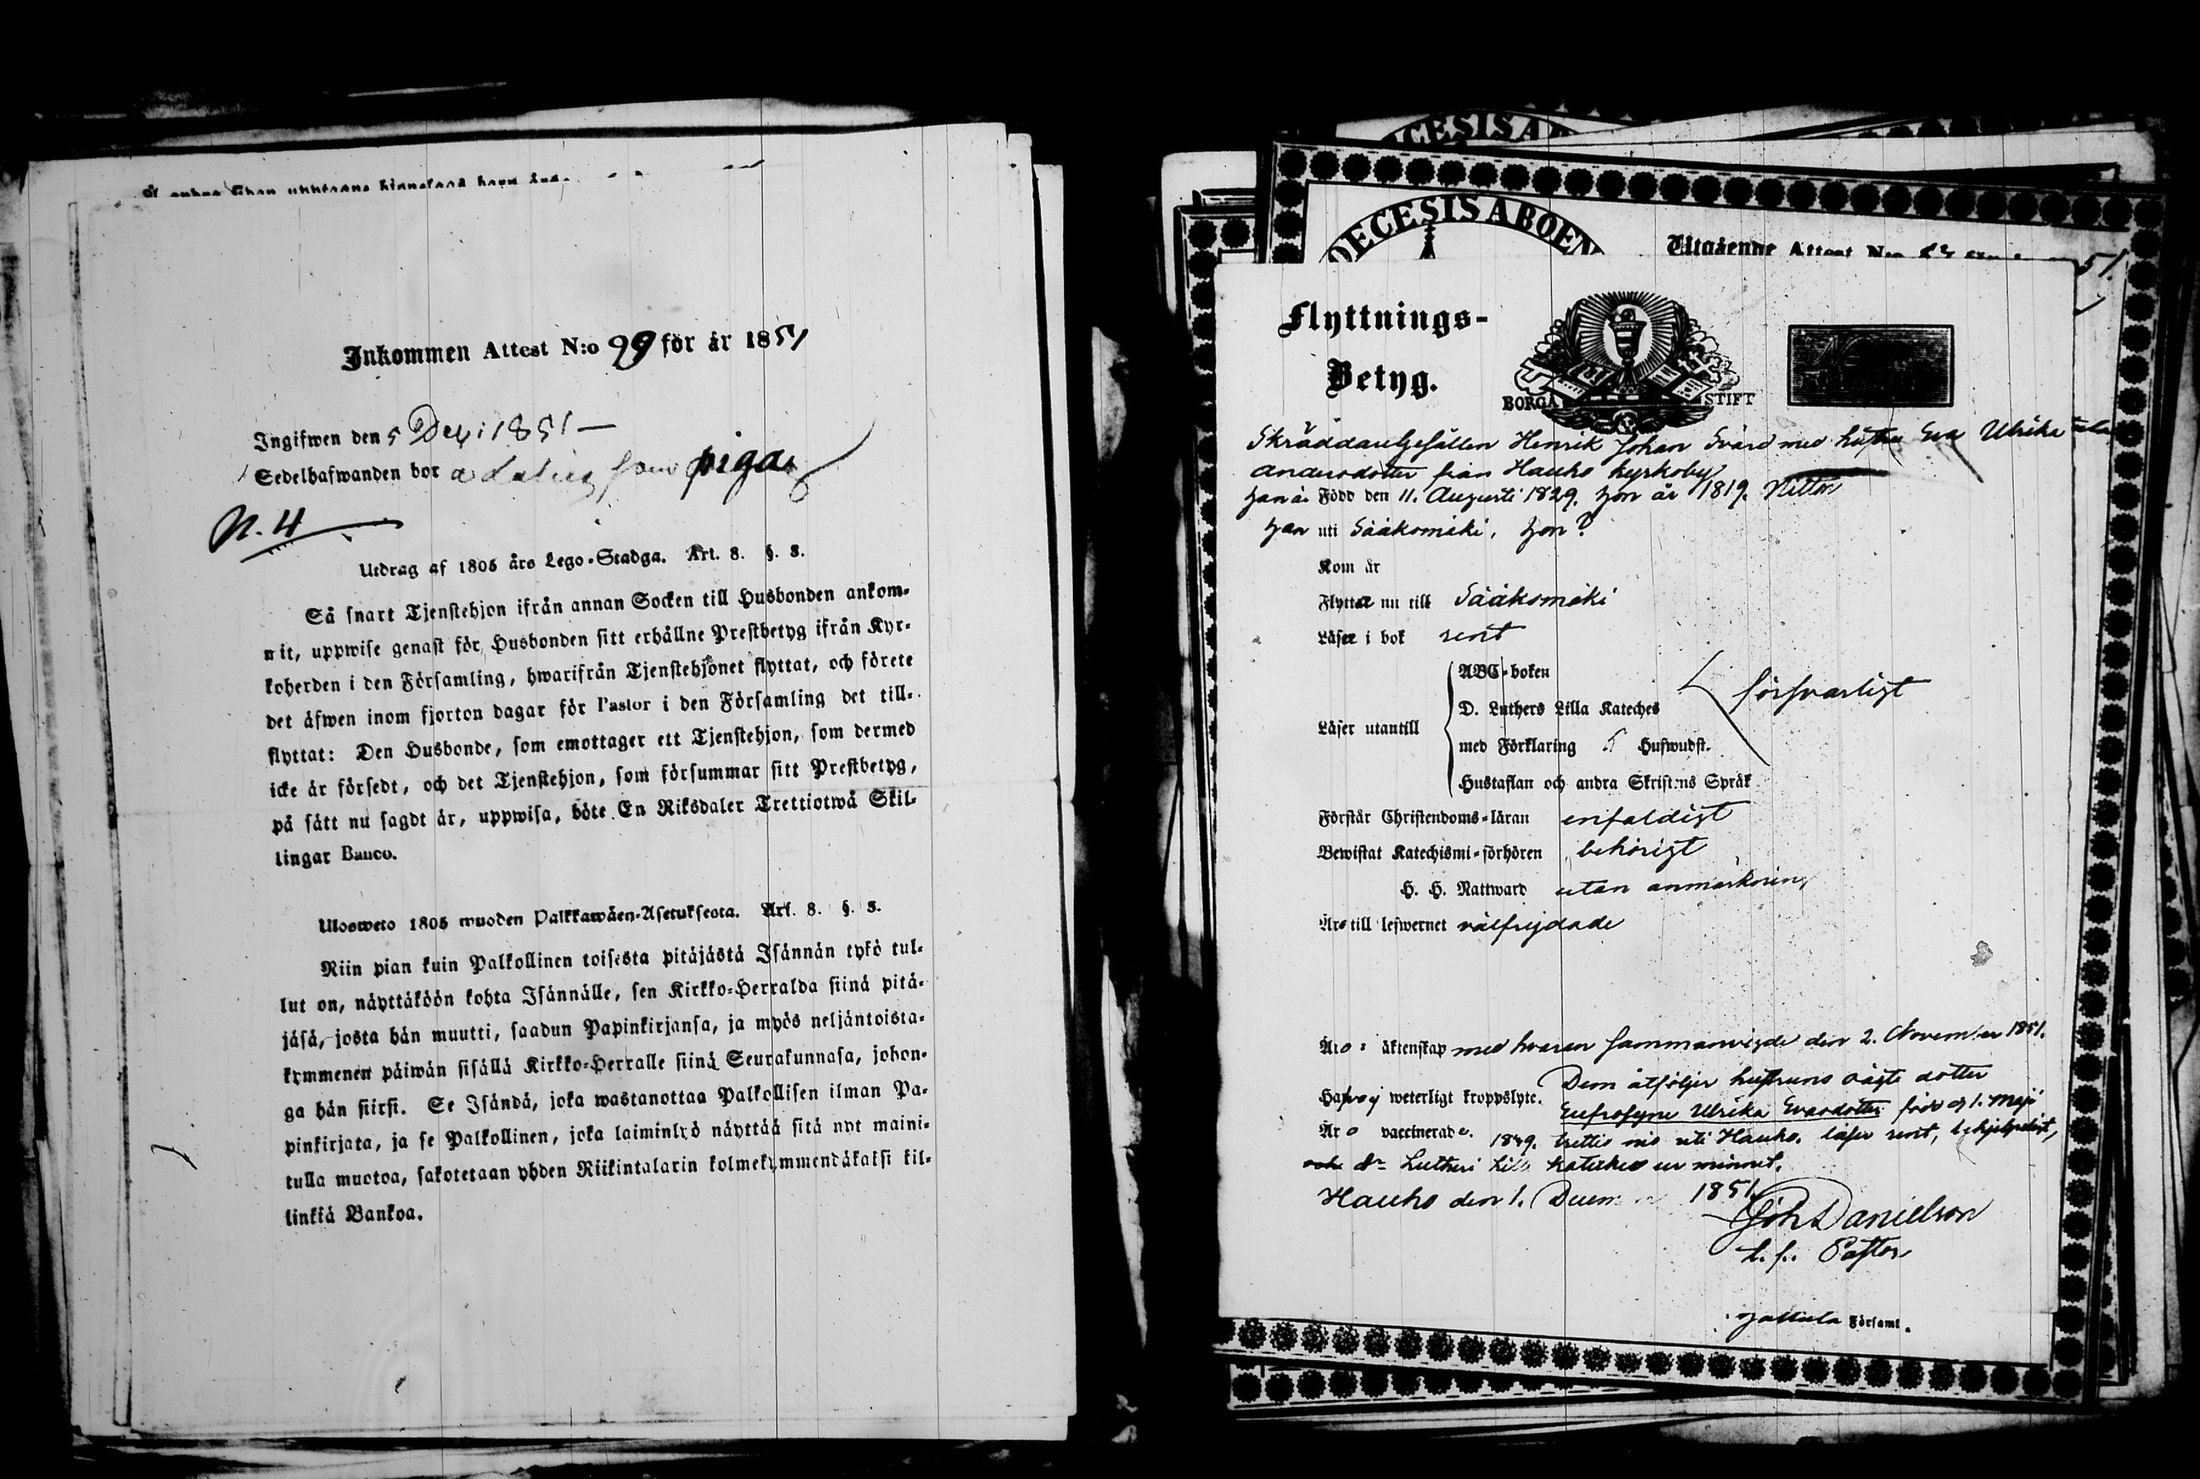 Inkommen Attest N:o 99 för år 1851
Ingifwen den 5 1851
Sedelhafwanden bor som piga
N. 4
Utdrag af 1805 års Lego-Stadga. Art. 8. §. 3.
Så snart Tjenstehjon ifrån annan Socken till Husbonden ankom-
mit, uppwise genast för Husbonden sitt erhållne Prestbetyg ifrån Kyr-
koherden i den Församling, hwarifrån Tjenstehjonet flyttat, och förete
det äfwen inom fjorton dagar för Pastor i den Församling det till-
flyttat: Den Husbonde, som emottager ett Tjenstehjon, som dermed
icke är försedt, och det Tjenstehjon, som försummar sitt Prestbetyg,
på sätt nu sagdt är, uppwisa, böte En Riksdaler Trettiotwå Skil-
lingar Banco.
Ulosweto 1805 wuoden Palkkawäen-Asetuksesta. Art. 8. §. 3.
Niin pian kuin Palkollinen toisesta pitäjästä Isännän tykö tul-
lut on, näyttäköön kohta Isännälle, sen Kirkko-Herralda siinä pitä-
jäsä, josta hän muutti, saadun Papinkirjansa, ja myös neljäntoista-
kymmenen päiwän sisällä Kirkko-Herralle siinä Seurakunnasa, johon-
ga hän siirsi. Se Isändä, joka wastanottaa Palkollisen ilman Pa-
pinkirjata, ja se Palkollinen, joka laiminlyö näyttää sitä nyt maini-
tulla muotoa, sakotetaan yhden Riikintalarin kolmekymmendäkaksi kil-
linkiä Bankoa.
DECESIS ABOEN
Utgående Attest N:o 51.
Flyttnings-
Betyg.
BORGÅ STIFT
Skräddaregesällen Henrik Johan Svärd med hustru Eva Ulrika
Andersdotter från Hauho kyrkoby
han är Född den 11. Augusti 1829. hon år 1819.
han uti Sääksmäki, hon?
Kom år
Flyttar nu till Sääksmäki
Läser i bok rent
ABC-boken
D. Luthers Lilla Kateches
Läser utantill försvarligt
med Förklaring 5 Hufwudst.
Hustaflan och andra Skriftens Språk
Förstår Christendoms-läran enfaldigt
Bewistat Katechismi-förhören behörigt
H. H. Nattward utan anmärkning
Äro till lefwernet välfrejdade
Äro i äktenskap med hvaran sammanvigde den 2. November 1851.
Dem åtföljer hustruns oägta dotter
Hafva ej weterligt kroppslyte.
Eufrosyne Ulrika Evasdotter född d 1. Maji
Äro vaccinerade. 1839. uti Hauho. läser rent,
och Dr Lutheri Lilla kateches ur minnet.
Hauho den 1. Decem 1851.
Joh Danielson
t. f. Pastor
Församl.